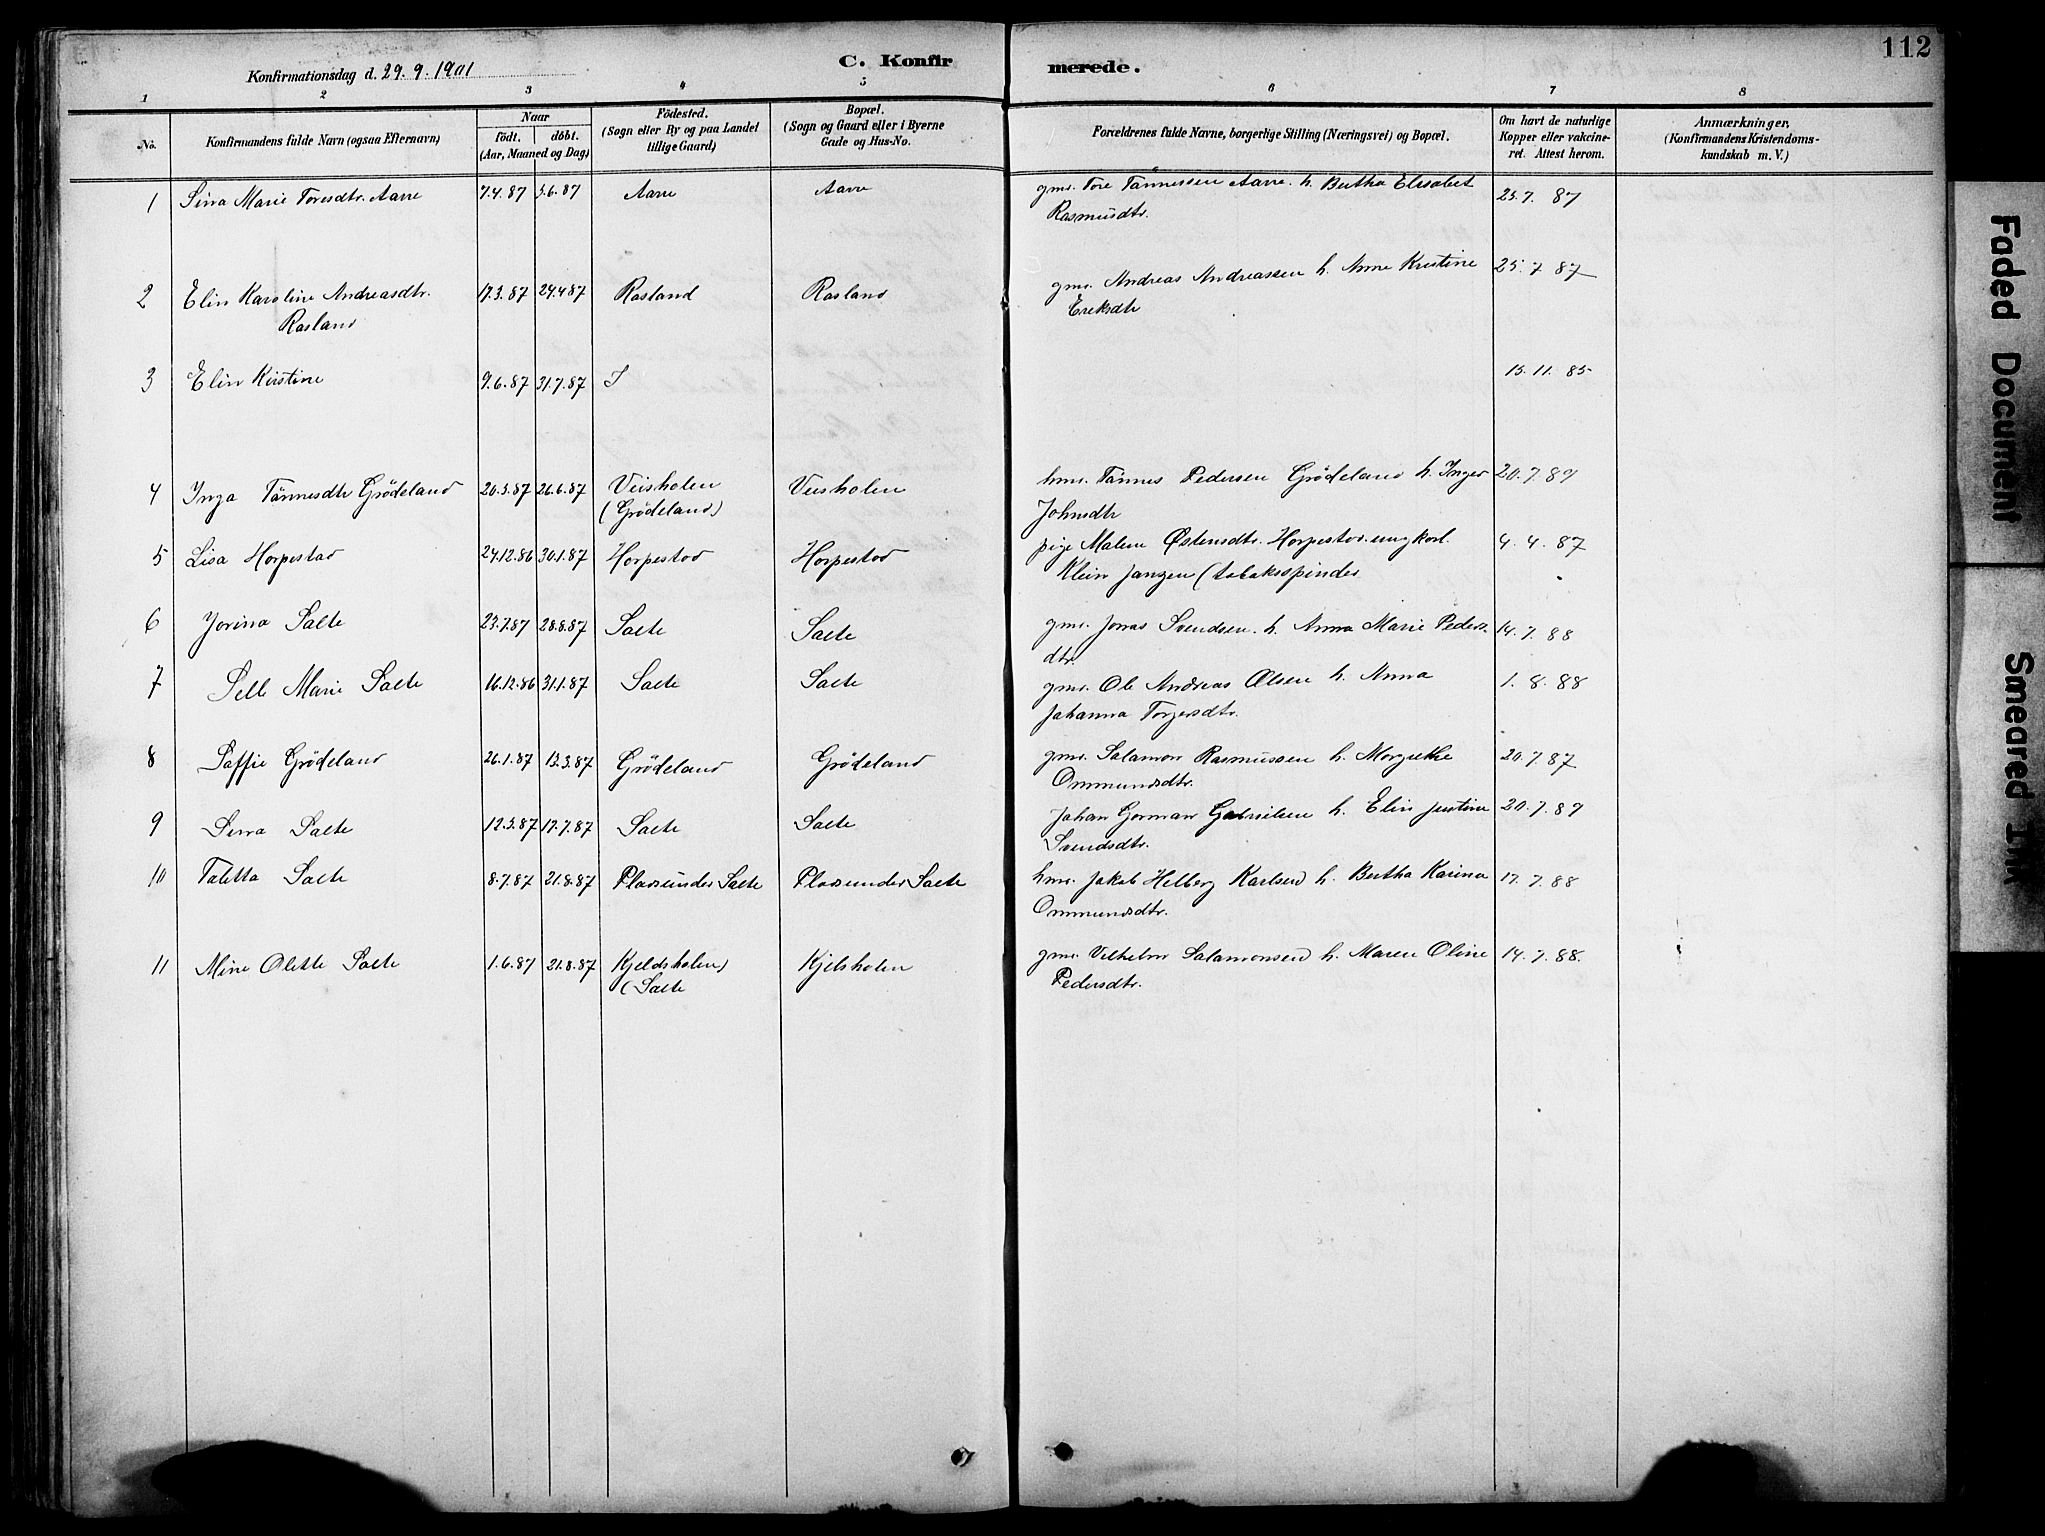 112
Konfirmationsdag d. 29. 9. 1901
C. Konfirmerede.
1 2 3 4 5 6 7 8
No.
Konfirmandens fulde Navn (ogsaa Efternavn)
Naar
födt. döbt.
(Aar, Maaned og Dag)
Födested.
(Sogn eller By og paa Landet
tillige Gaard)
Bopæl.
(Sogn og Gaard eller i Byerne
Gade og Hus-No.
Forældrenes fulde Navne, borgerlige Stilling (Næringsvei) og Bopæl.
Om havt de naturlige
Kopper eller vakcine-
ret. Attest herom.
Anmærkninger,
(Konfirmandens Kristendoms-
kundskab m. V.)
1 Sina Marie Toresdtr. Aarre 7.4.87 5.6.87 Aarre Aarre gmr. Tore Tønnessen Aarre. h. Bertha Elisabet 25. 7. 87
Rasmusdtr.
2 Elin Karoline Andreasdtr. 17.3.87 24.4.87 Rosland Rosland gmr. Andreas Andreassen h. Anne Kristine 25. 7 87
Rosland Eriksdtr
3 Elin Kirstine 9.6.87 31.7.87 I 15. 11. 85
4 Inga Tønnesdtr Grödeland 20.3.87 26.6.87 Veisholen Veisholen hmr. Tønnes Pedersen Grödeland h. Inger 20. 7. 89
(Grödeland) Johnsdtr
5 Lisa Horpestad 24.12.86 30.1.87 Horpestad Horpestad pige Malene Østensdtr. Horpestad. ungkarl. 4. 4. 87
Klein Janzen (tobakspinder
6 Jorina Salte 23.7.87 28.8.87 Salte Salte gmr. Jonas Svendsen. h. Anna Marie Peders- 14. 7. 88
dtr.
7 Selli Marie Salte 16.12.86 31.1.87 Salte Salte gmr. Ole Andreas Olsen h. Anna 1. 8. 88
Johanna Torgersdtr.
8 Soffie Grödeland 26.1.87 13.3.87 Grödeland Grödeland gmr. Salamon Rasmussen h. Margrethe 20. 7. 87
Ommundsdtr.
9 Serina Salte 12.3.87 17.7.87 Salte Salte Johan Gorman Gabrielsen h. Elin Justine 20. 7. 89
Svendsdtr.
10 Taletta Salte 8.7.87 21.8.87 Plads under Salte Plads under Salte hmr. Jakob Helberg Karlsen h. Bertha Karina 17. 7. 88
Ommundsdtr.
11 Mine Olette Salte 1.6.87 21.8.87 Kjeldsholen) Kjelsholen gmr. Vilhelm Salamonsen h. Maren Oline 14. 7. 88.
(Salte Pedersdtr.
Faded Document
Smeared Ink